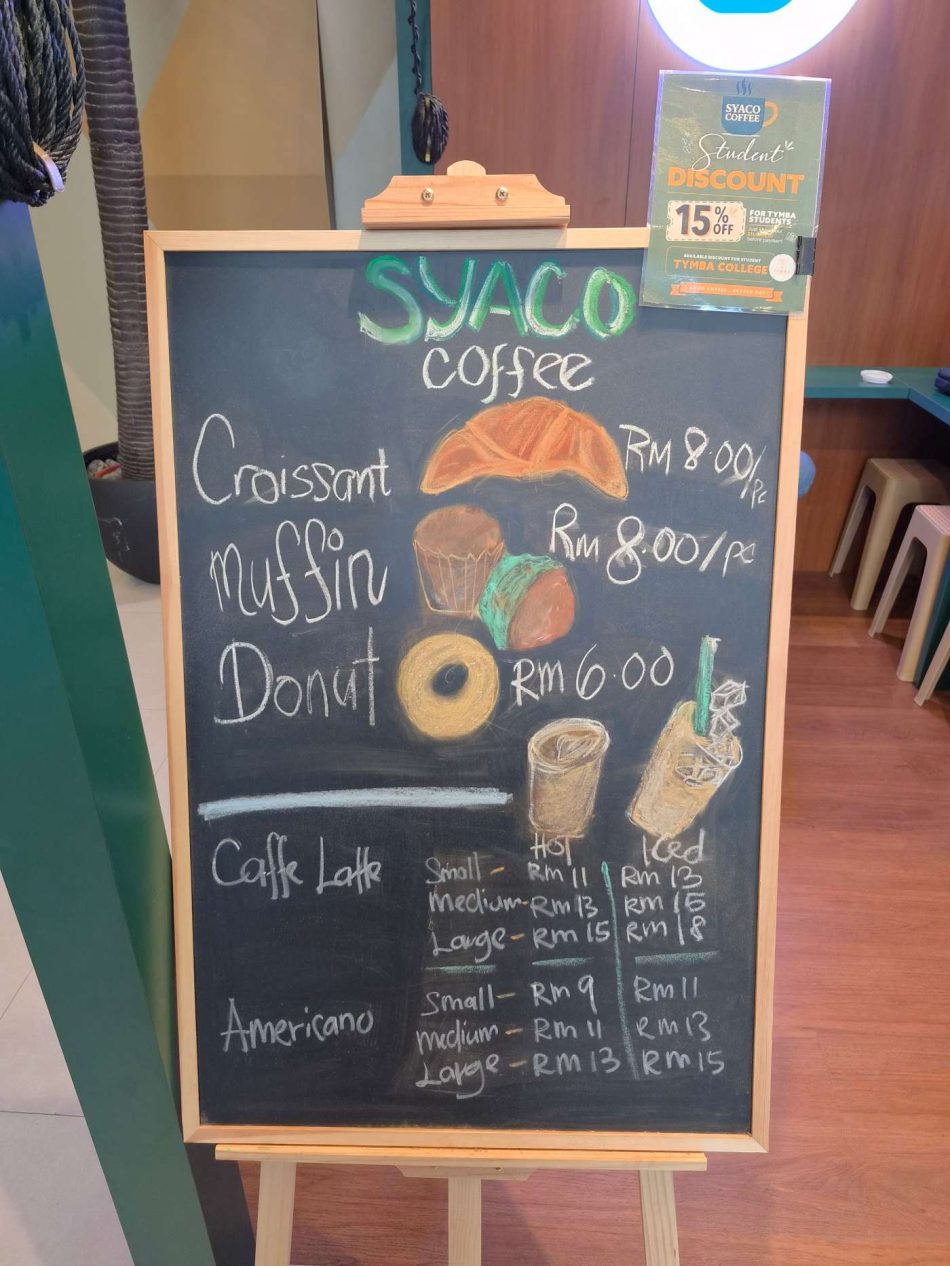 SYACO
COFFEE
Student
DISCOUNT
15% OFF
FOR TYMBA
STUDENTS
before payment
AVAILABLE DISCOUNT FOR STUDENT
TYMBA COLLEGE
SYACO
coffee
Croissant RM 8.00/pc
Muffin Rm 8.00/pc
Donut Rm 6.00
Hot Iced
Caffe Latte Small - Rm 11 Rm 13
medium - Rm 13 Rm 15
Large - Rm 15 Rm 18
Americano Small - Rm 9 Rm 11
medium - Rm 11 Rm 13
Large - Rm 13 Rm 15